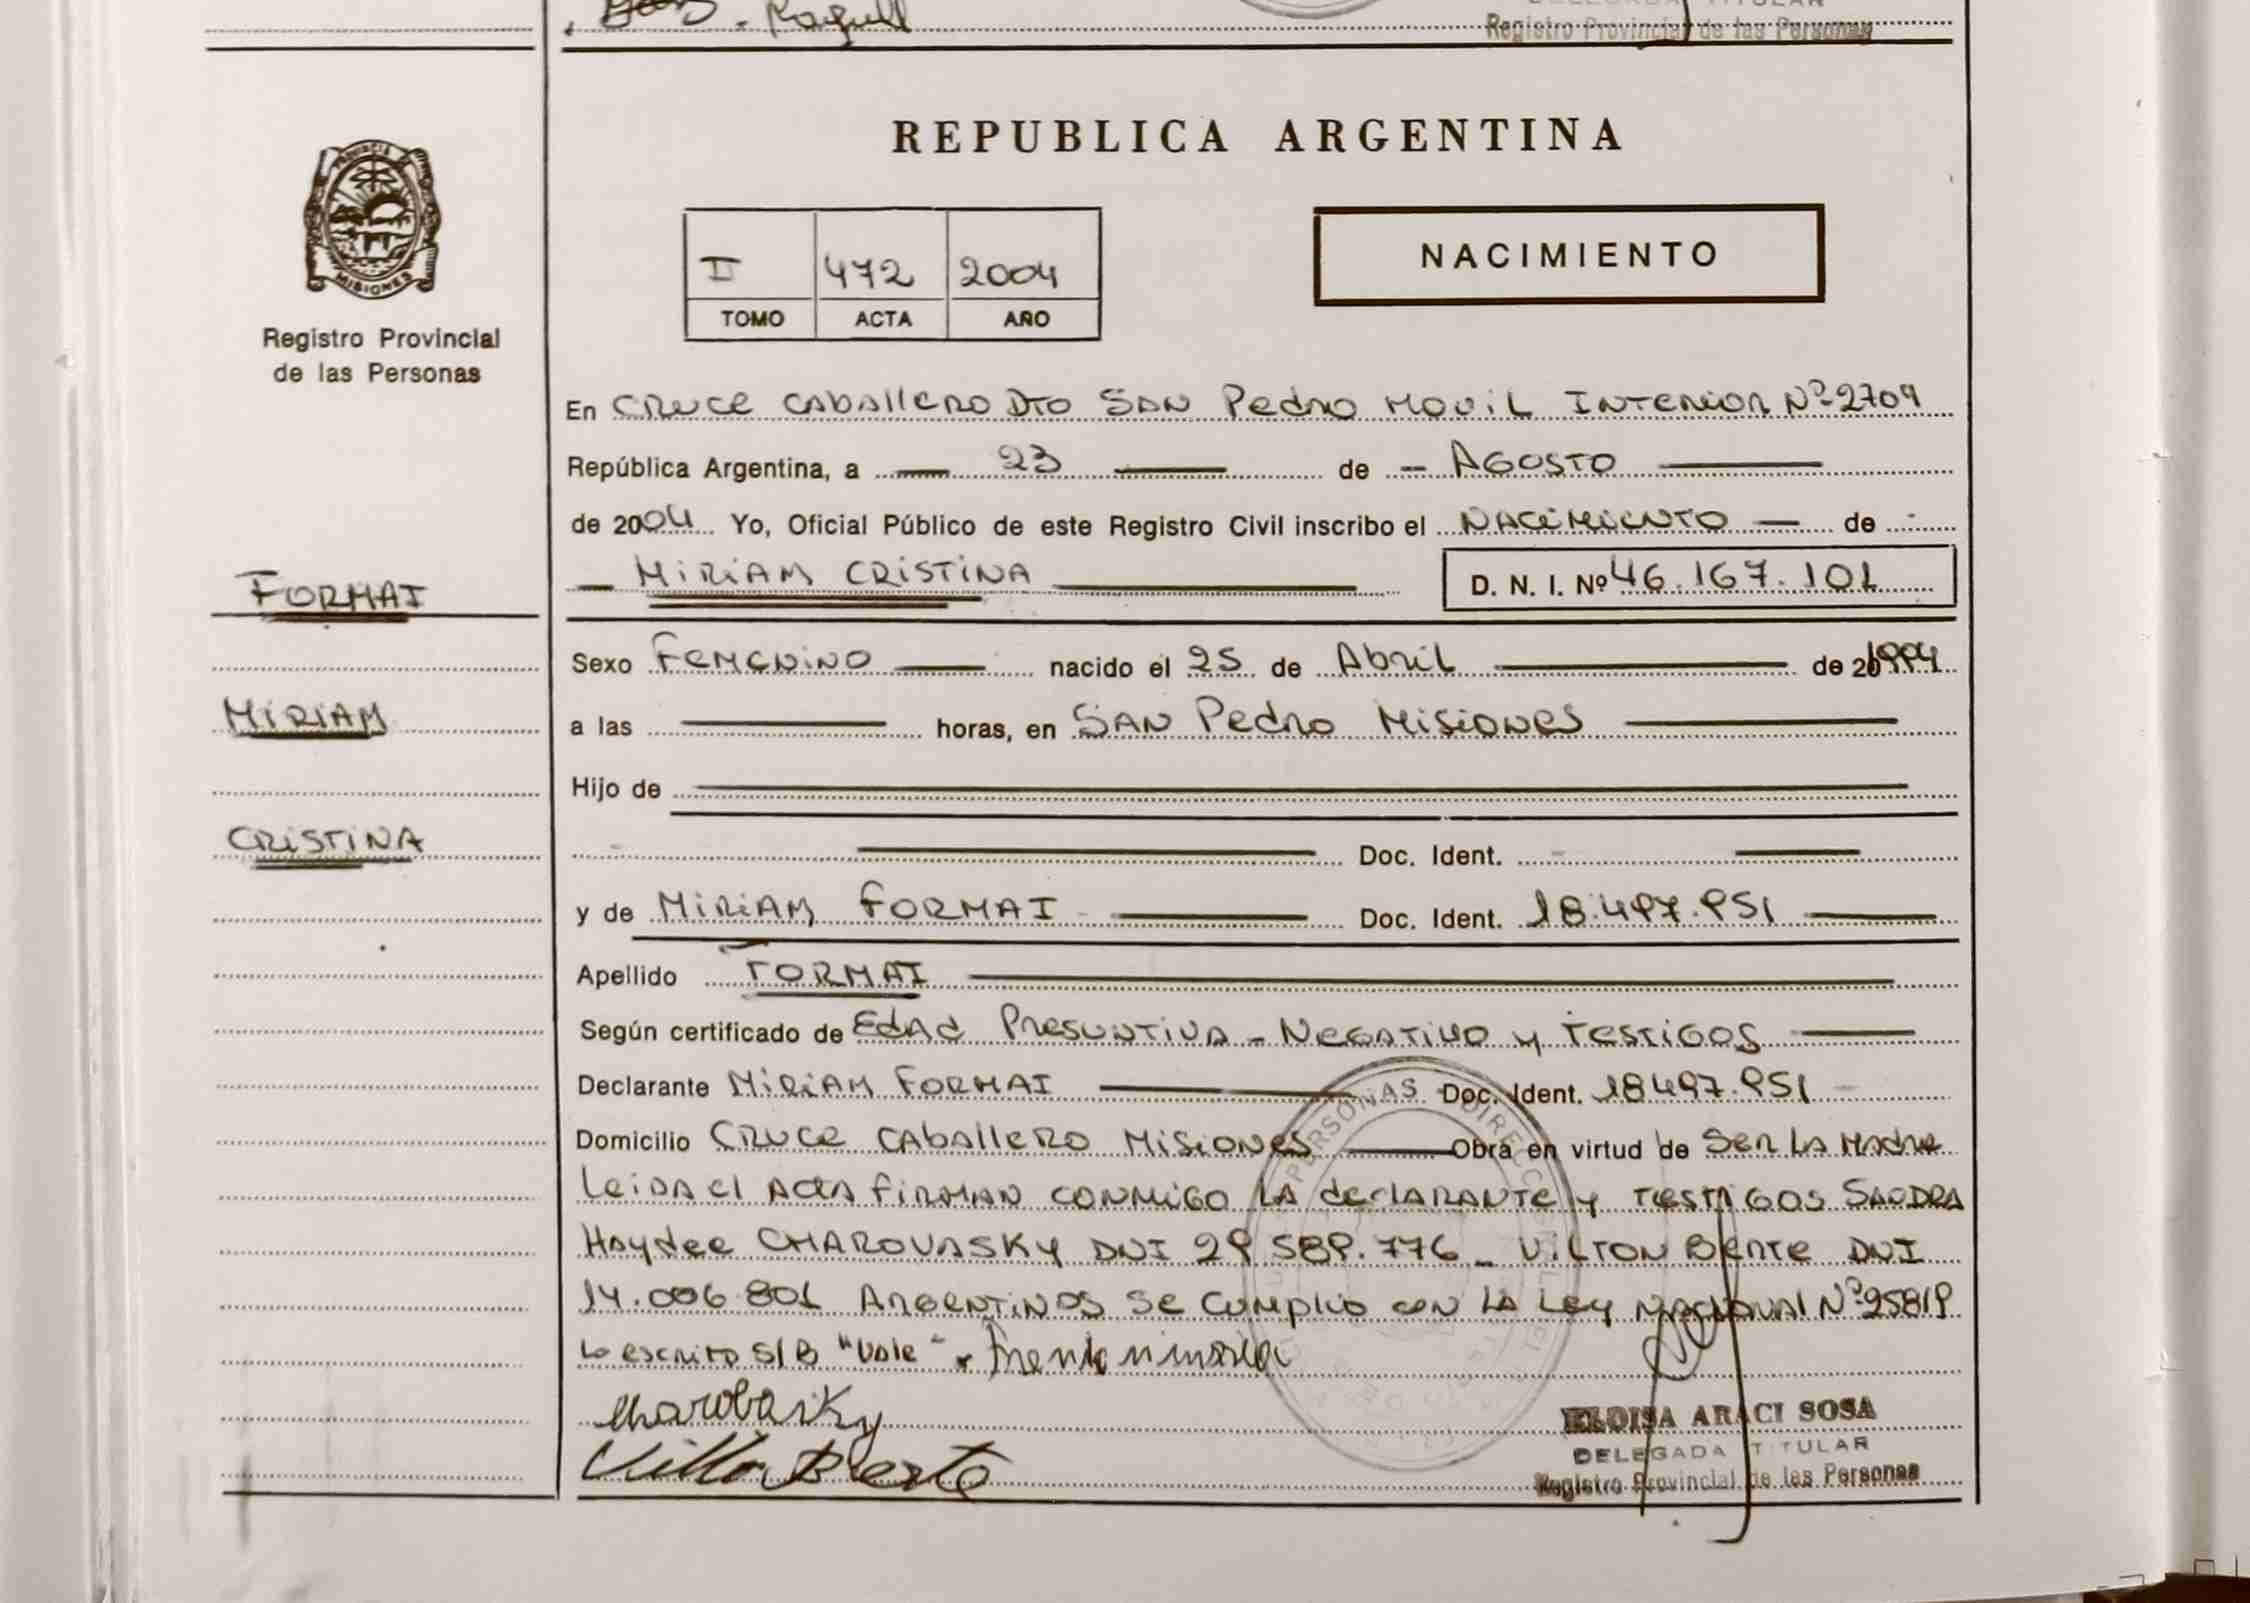 Raquel
DELEGADA TITULAR
Registro Provincial de las Personas
REPUBLICA ARGENTINA
PROVINCIA DE
MISIONES
Registro Provincial
de las Personas
II 472 2004
TOMO ACTA AÑO
NACIMIENTO
En CRUCE CABALLERO DTO SAN PEDRO MOVIL INTERIOR Nº 2709
República Argentina, a 23 de AGOSTO
de 2004 Yo, Oficial Público de este Registro Civil inscribo el NACIMIENTO de
MIRIAM CRISTINA D. N. I. Nº 46.167.101
FORMAI
Sexo FEMENINO nacido el 25 de Abril de 1994
MIRIAM
a las horas, en SAN PEDRO MISIONES
Hijo de
CRISTINA
Doc. Ident.
y de MIRIAM FORMAI Doc. Ident. 18.497.951
Apellido FORMAI
Según certificado de EDAD PRESUNTIVA - NEGATIVO y TESTIGOS
Declarante MIRIAM FORMAI Doc. Ident. 18497.951
Domicilio CRUCE CABALLERO MISIONES Obra en virtud de SER LA MADRE
LEIDA EL ACTA FIRMAN CONMIGO LA DECLARANTE y TESTIGOS SANDRA
HAYDEE CHAROVASKY DNI 29.589.776 - VILTON BERTE DNI
14.006.801 ARGENTINOS SE CUMPLIO CON LA LEY NACIONAL Nº 25819
Lo escrito S/B "Vale" -
Charobasky
ELOISA ARACI SOSA
DELEGADA TITULAR
Registro Provincial de las Personas